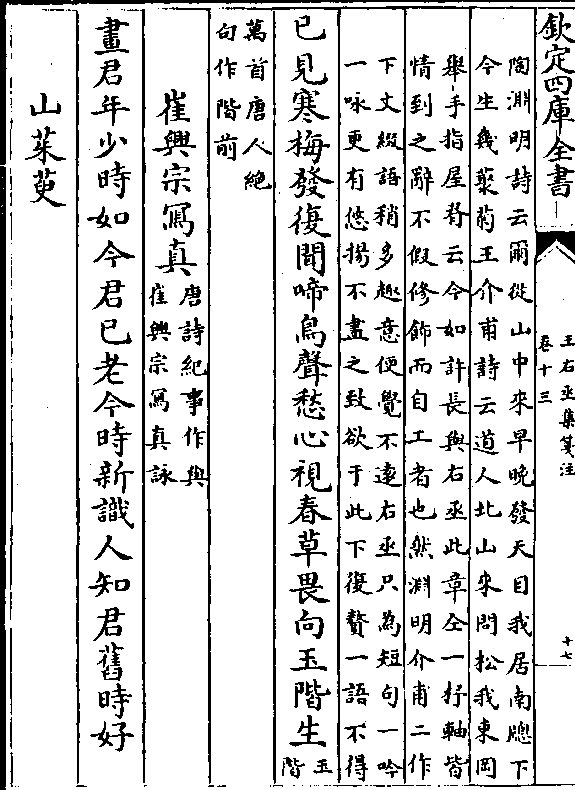 欽定四庫全書
王右丞集箋注
卷十三
十七
陶淵明詩云爾從山中來早晚發天目我居南牕下
今生幾叢菊王介甫詩云道人北山來問松我東岡
舉手指屋脊云今如許長與右丞此章仝一抒軸皆
情到之辭不假修飾而自工者也然淵明介甫二作
下文綴語稍多趣意便覺不遠右丞只為短句一吟
一咏更有悠揚不盡之致欲于此下復贅一語不得
已見寒梅發復聞啼鳥聲愁心視春草畏向玉階生
玉階
萬首唐人絕
句作階前
崔興宗寫真
唐詩紀事作與
崔興宗寫真詠
畫君年少時如今君已老今時新識人知君舊時好
山茱萸